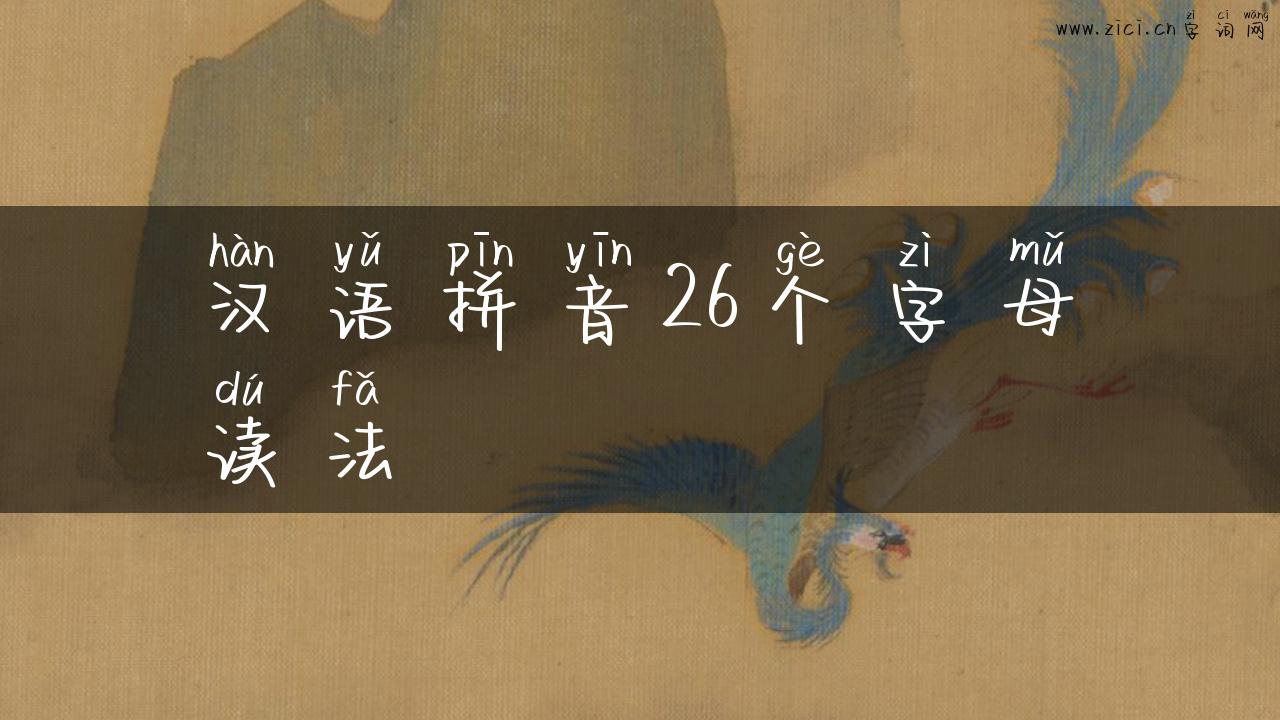 zì cí wǎng
www.zici.cn 字词网
hàn yǔ pīn yīn gè zì mǔ
汉语拼音26个字母
dú fǎ
读法